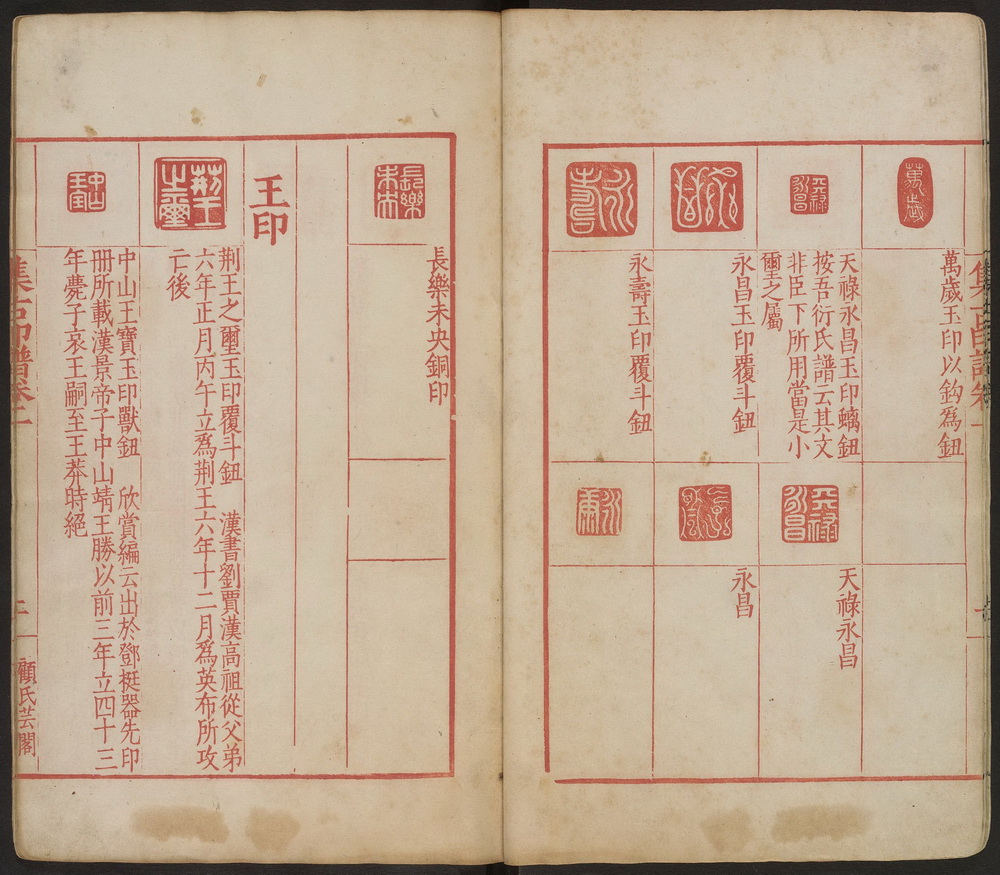 萬歲
萬歲玉印以鈎爲鈕
天祿永昌
天祿永昌玉印螭鈕
按吾衍氏譜云其文
非臣下所用當是小
璽之屬
永昌
永昌玉印覆斗鈕
永壽
永壽玉印覆斗鈕
天祿永昌
天祿永昌
永昌
長樂未央
長樂未央銅印
王印
荆王之璽
荆王之璽玉印覆斗鈕 漢書劉賈漢高祖從父弟
六年正月丙午立爲荆王六年十二月爲英布所攻
亡後
中山王寶
中山王寶玉印獸鈕 欣賞編云出於鄧梃器先印
冊所載漢景帝子中山靖王勝以前三年立四十三
年薨子哀王嗣至王莽時絕
集古印譜卷二
二
顧氏芸閣